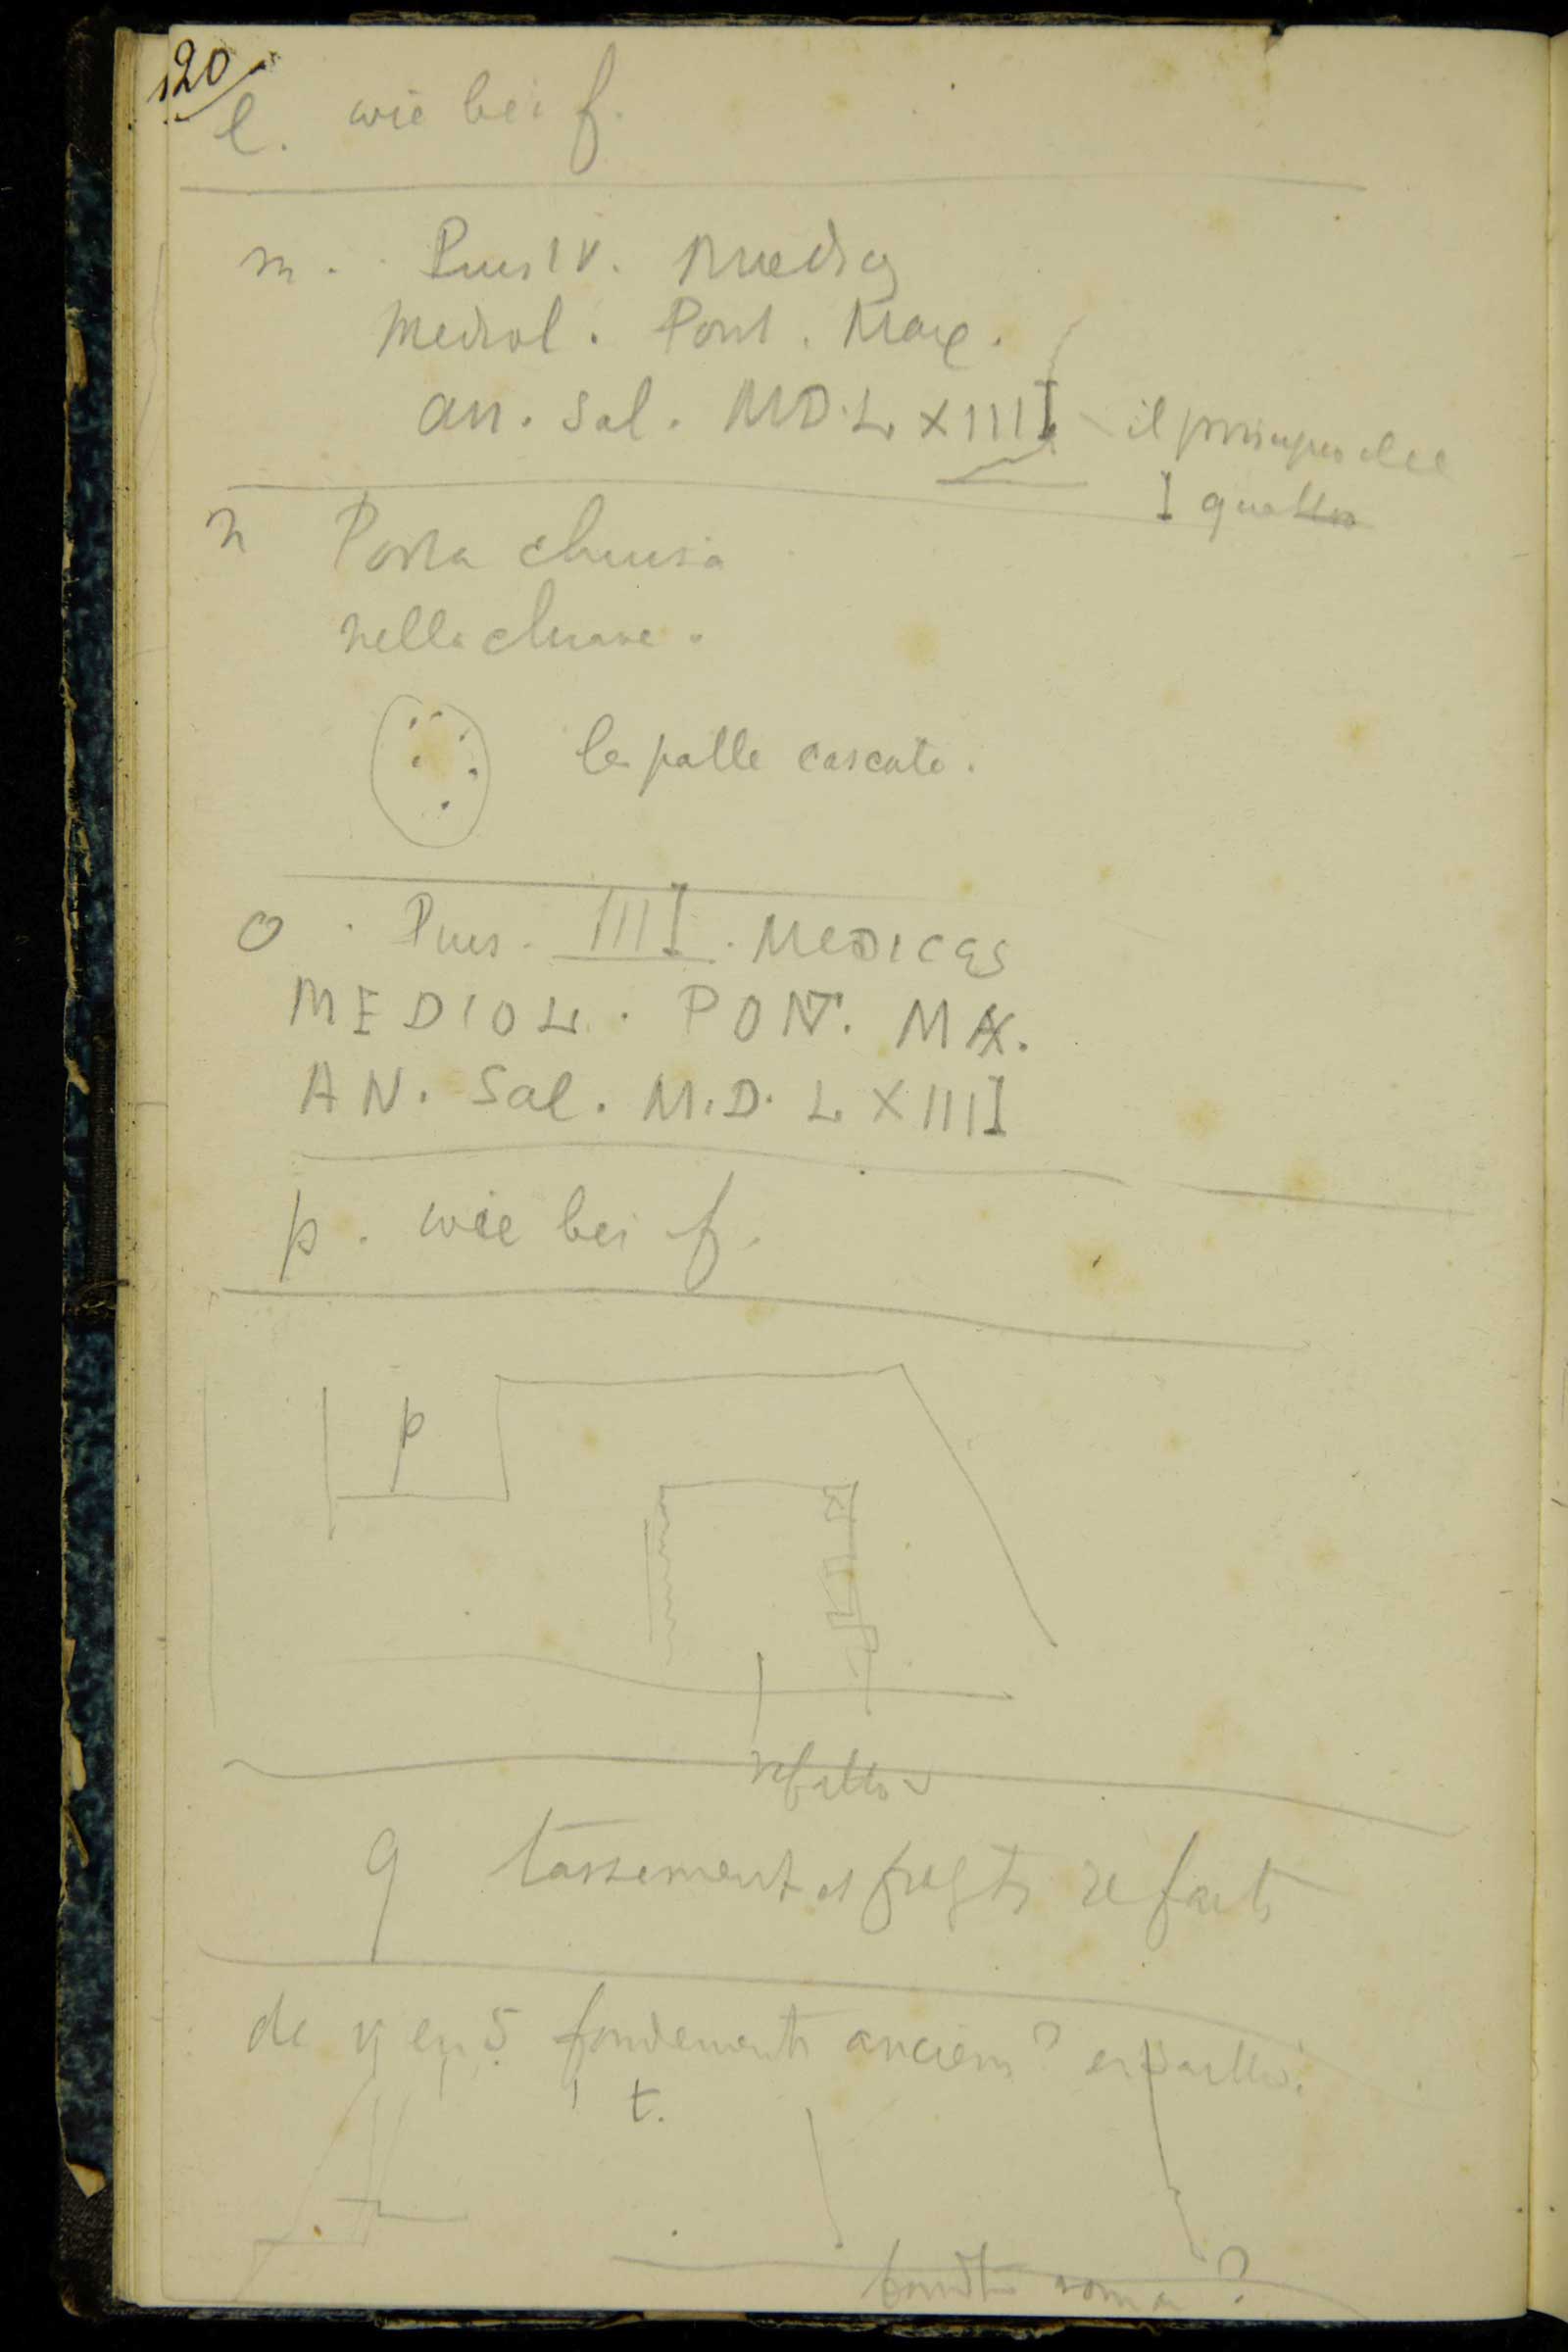 120
l. wie bei f.
m. Pius IV. Medices
Mediol. Pont. Max.
an. Sal. MD.LXIIII il principio del
I quatto
n Porta chiusa
nella chiave.
le palle cascate.
O. Pius. IIII. MEDICES
MEDIOL. PONT. MAX.
AN. Sal. M.D.LXIIII
p. wie bei f.
p
refatto
q tassement et fragts refaits
de en s fondements anciens?
t.
roma?